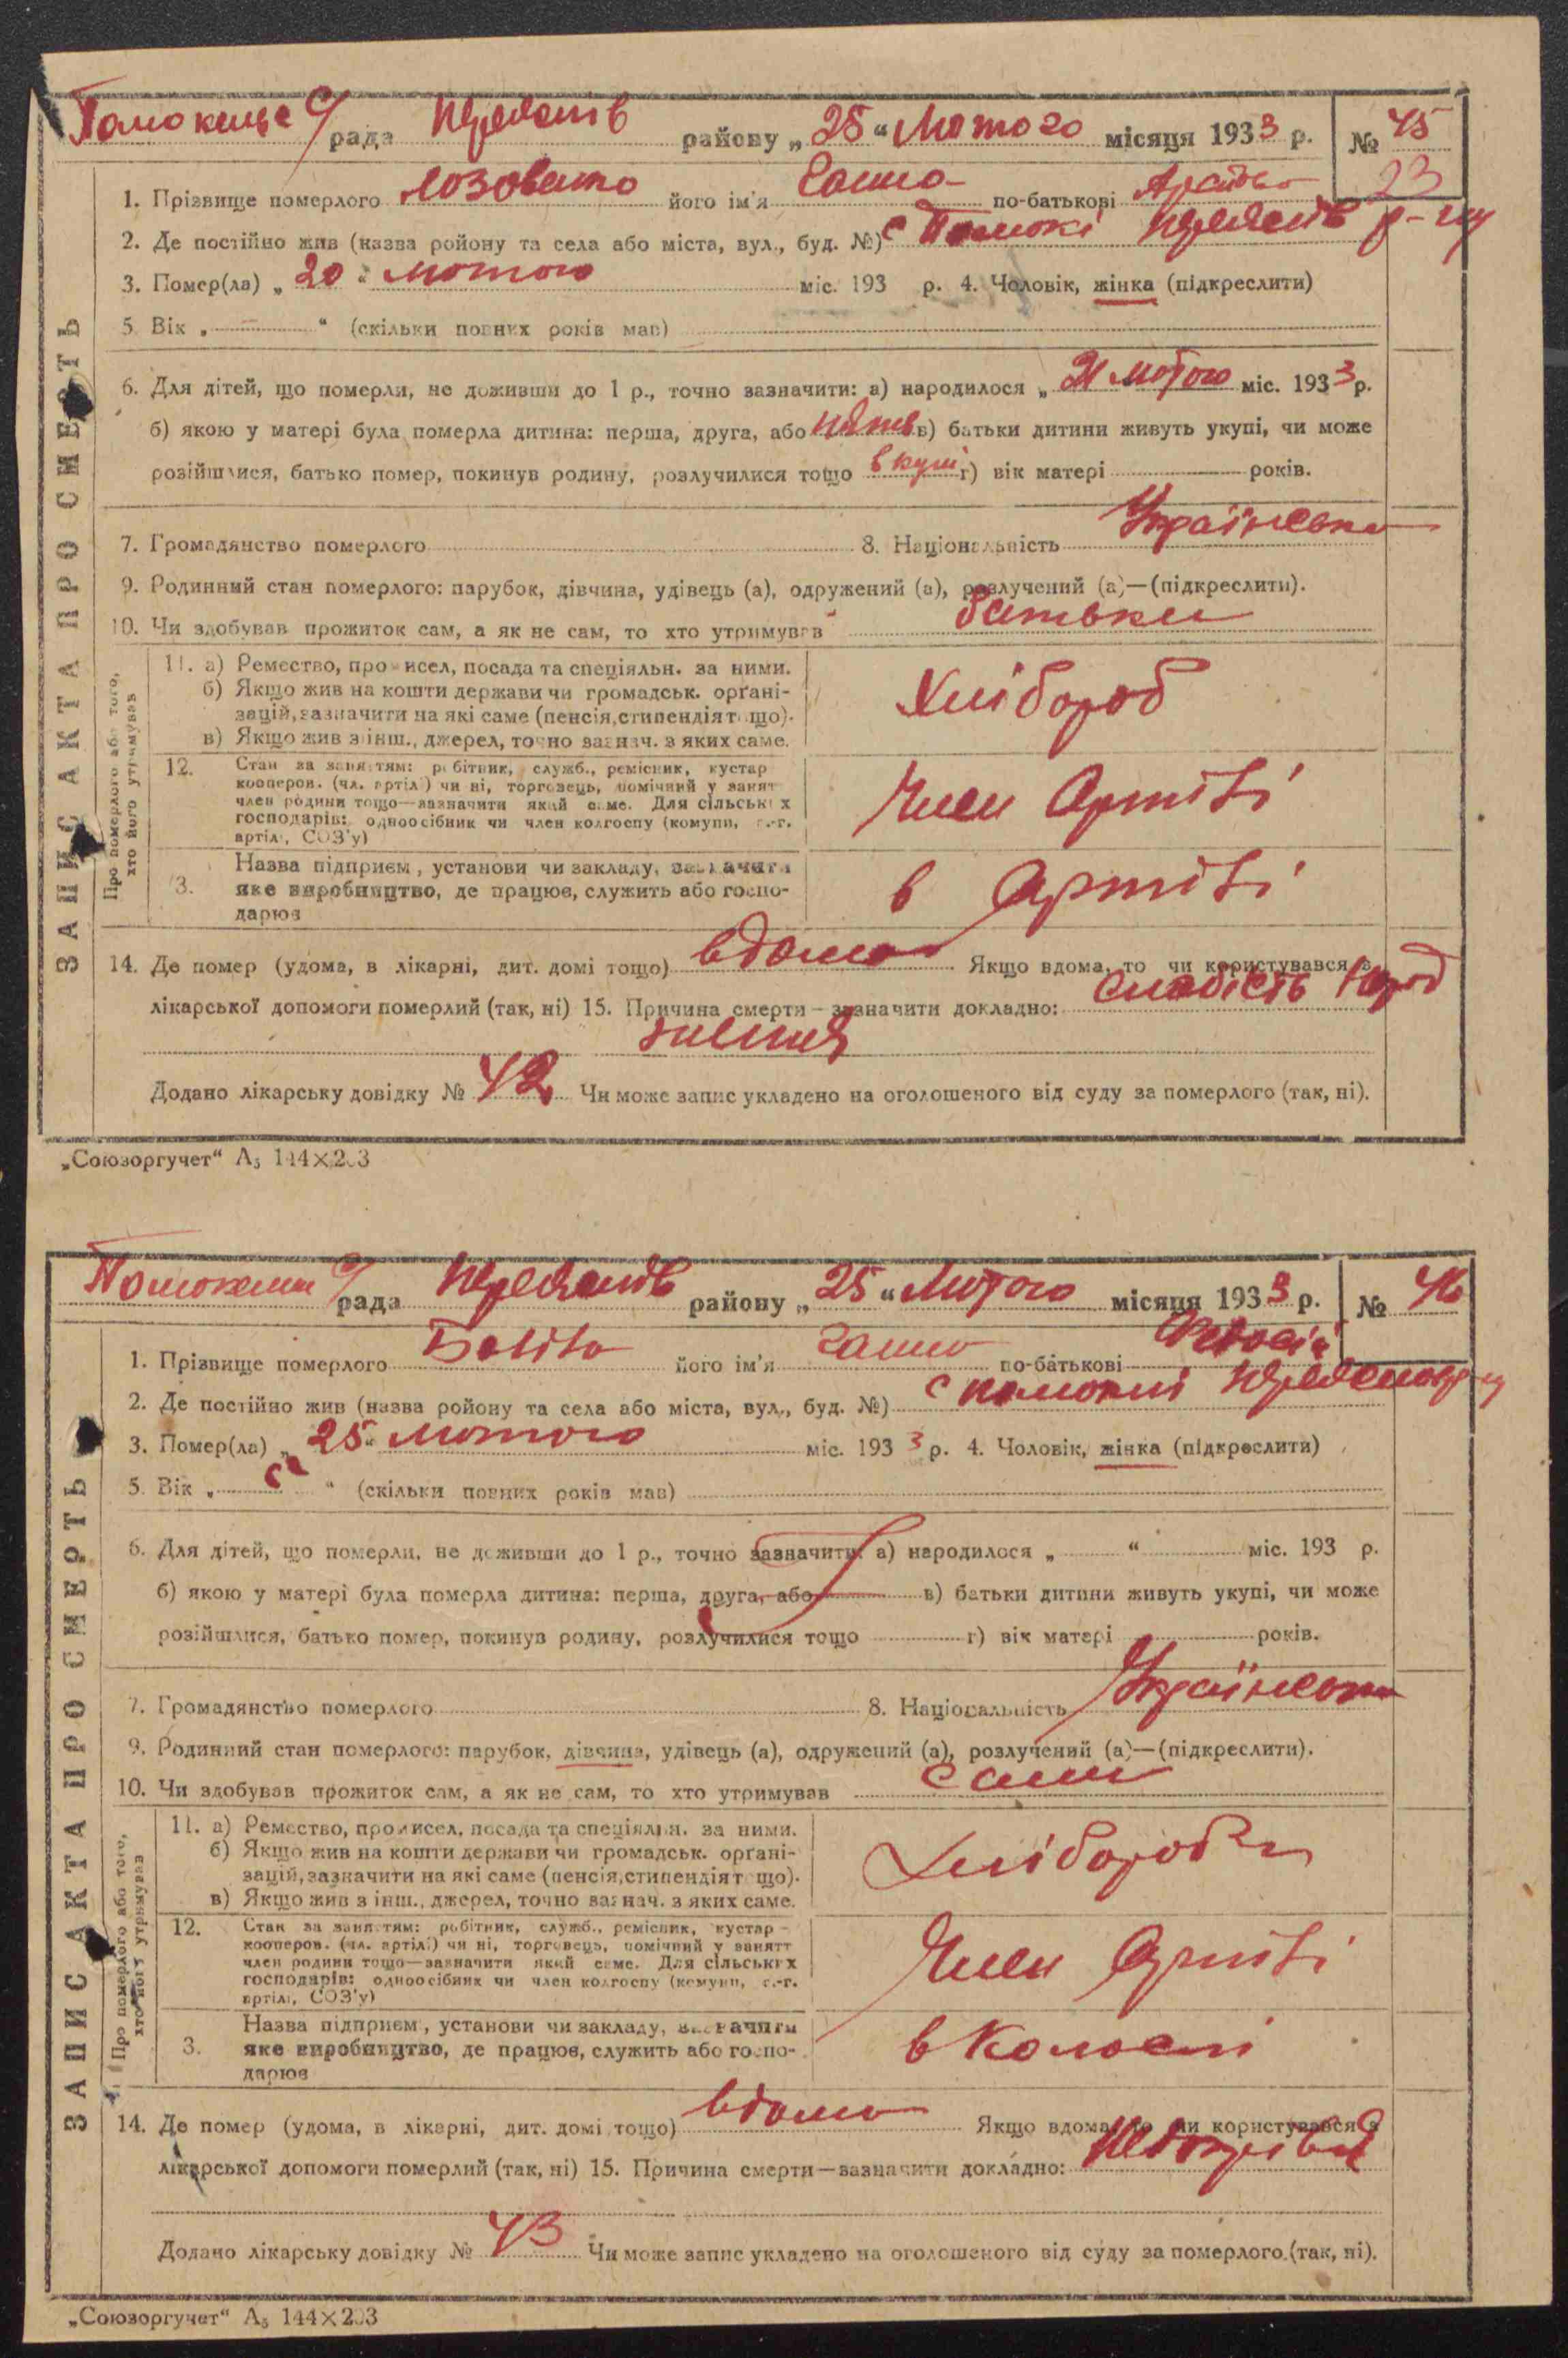 рада районy „ 25 “ Лютого місяця 1933 р. № 45
23
1. Прізвище померлого його ім'я по-батькові
2. Де постійно жив (назва ройону та села або міста, вул., буд. №) с
3. Помер(ла) „ 20 “ лютого міс. 193 р. 4. Чоловік, жінка (підкреслити)
5. Вік „ “ (скільки повних років мав)
6. Для дітей, що померли, не доживши до 1 р., точно зазначити: а) народилося „ лютого міс. 1933 р.
б) якою у матері була померла дитина: перша, друга, або в) батьки дитини живуть укупі, чи може
розійшлися, батько помер, покинув родину, розлучилися тощо вкупі г) вік матері років.
7. Громадянство померлого 8. Національність Українська
9. Родинний стан померлого: парубок, дівчина, удівець (а), одружений (а), розлучений (а)—(підкреслити).
10. Чи здобував прожиток сам, а як не сам, то хто утримував батьки
ЗАПИС АКТА ПРО СМЕРТЬ
Про померлого або того,
хто його утримував
11. а) Ремество, промисел, посада та спеціяльн. за ними.
б) Якщо жив на кошти держави чи громадськ. орґані-
зацій, зазначити на які саме (пенсія, стипендія тощо).
в) Якщо жив з інш., джерел, точно зазнач. з яких саме.
Хлібороб
12. Стан за заняттям: робітник, служб., ремісник, кустар
кооперов. (чл. артілі) чи ні, торговець, помічний у занят
член родини тощо—зазначити який саме. Для сільських
господарів: одноосібник чи член колгоспу (комуни, с.-г.
артілі, СОЗ'у)
Член Артілі
3. Назва підприєм, установи чи закладу, зазначити
яке виробництво, де працює, служить або госпо-
дарює
в Артілі
14. Де помер (удома, в лікарні, дит. домі тощо) вдома Якщо вдома, то чи користувався з
лікарської допомоги померлий (так, ні) 15. Причина смерти—зазначити докладно: слабість
Додано лікарську довідку № 42 Чи може запис укладено на оголошеного від суду за померлого (так, ні).
„Союзоргучет“ А₅ 144×203
рада району „ 25 “ Лютого місяця 1933 р. № 46
1. Прізвище померлого його ім'я по-батькові
2. Де постійно жив (назва ройону та села або міста, вул., буд. №) с
3. Помер(ла) „ 25 “ лютого міс. 1933 р. 4. Чоловік, жінка (підкреслити)
5. Вік „ “ (скільки повних років мав)
6. Для дітей, що померли, не доживши до 1 р., точно зазначити: а) народилося „ “ міс. 193 р.
б) якою у матері була померла дитина: перша, друга, або в) батьки дитини живуть укупі, чи може
розійшлися, батько помер, покинув родину, розлучилися тощо г) вік матері років.
7. Громадянство померлого 8. Національність Українська
9. Родинний стан померлого: парубок, дівчина, удівець (а), одружений (а), розлучений (а)—(підкреслити).
10. Чи здобував прожиток сам, а як не сам, то хто утримував сама
ЗАПИС АКТА ПРО СМЕРТЬ
Про померлого або того,
хто його утримував
11. а) Ремество, промисел, посада та спеціяльн. за ними.
б) Якщо жив на кошти держави чи громадськ. орґані-
зацій, зазначити на які саме (пенсія, стипендія тощо).
в) Якщо жив з інш., джерел, точно зазнач. з яких саме.
12. Стан за заняттям: робітник, служб., ремісник, кустар
кооперов. (чл. артілі) чи ні, торговець, помічний у занятт
член родини тощо—зазначити який саме. Для сільських
господарів: одноосібник чи член колгоспу (комуни, с.-г.
артілі, СОЗ'у)
Член Артілі
3. Назва підприєм, установи чи закладу, зазначити
яке виробництво, де працює, служить або госпо-
дарює
в
14. Де помер (удома, в лікарні, дит. домі тощо) вдома Якщо вдома, то чи користувався з
лікарської допомоги померлий (так, ні) 15. Причина смерти—зазначити докладно:
Додано лікарську довідку № 43 Чи може запис укладено на оголошеного від суду за померлого (так, ні).
„Союзоргучет“ А₅ 144×203